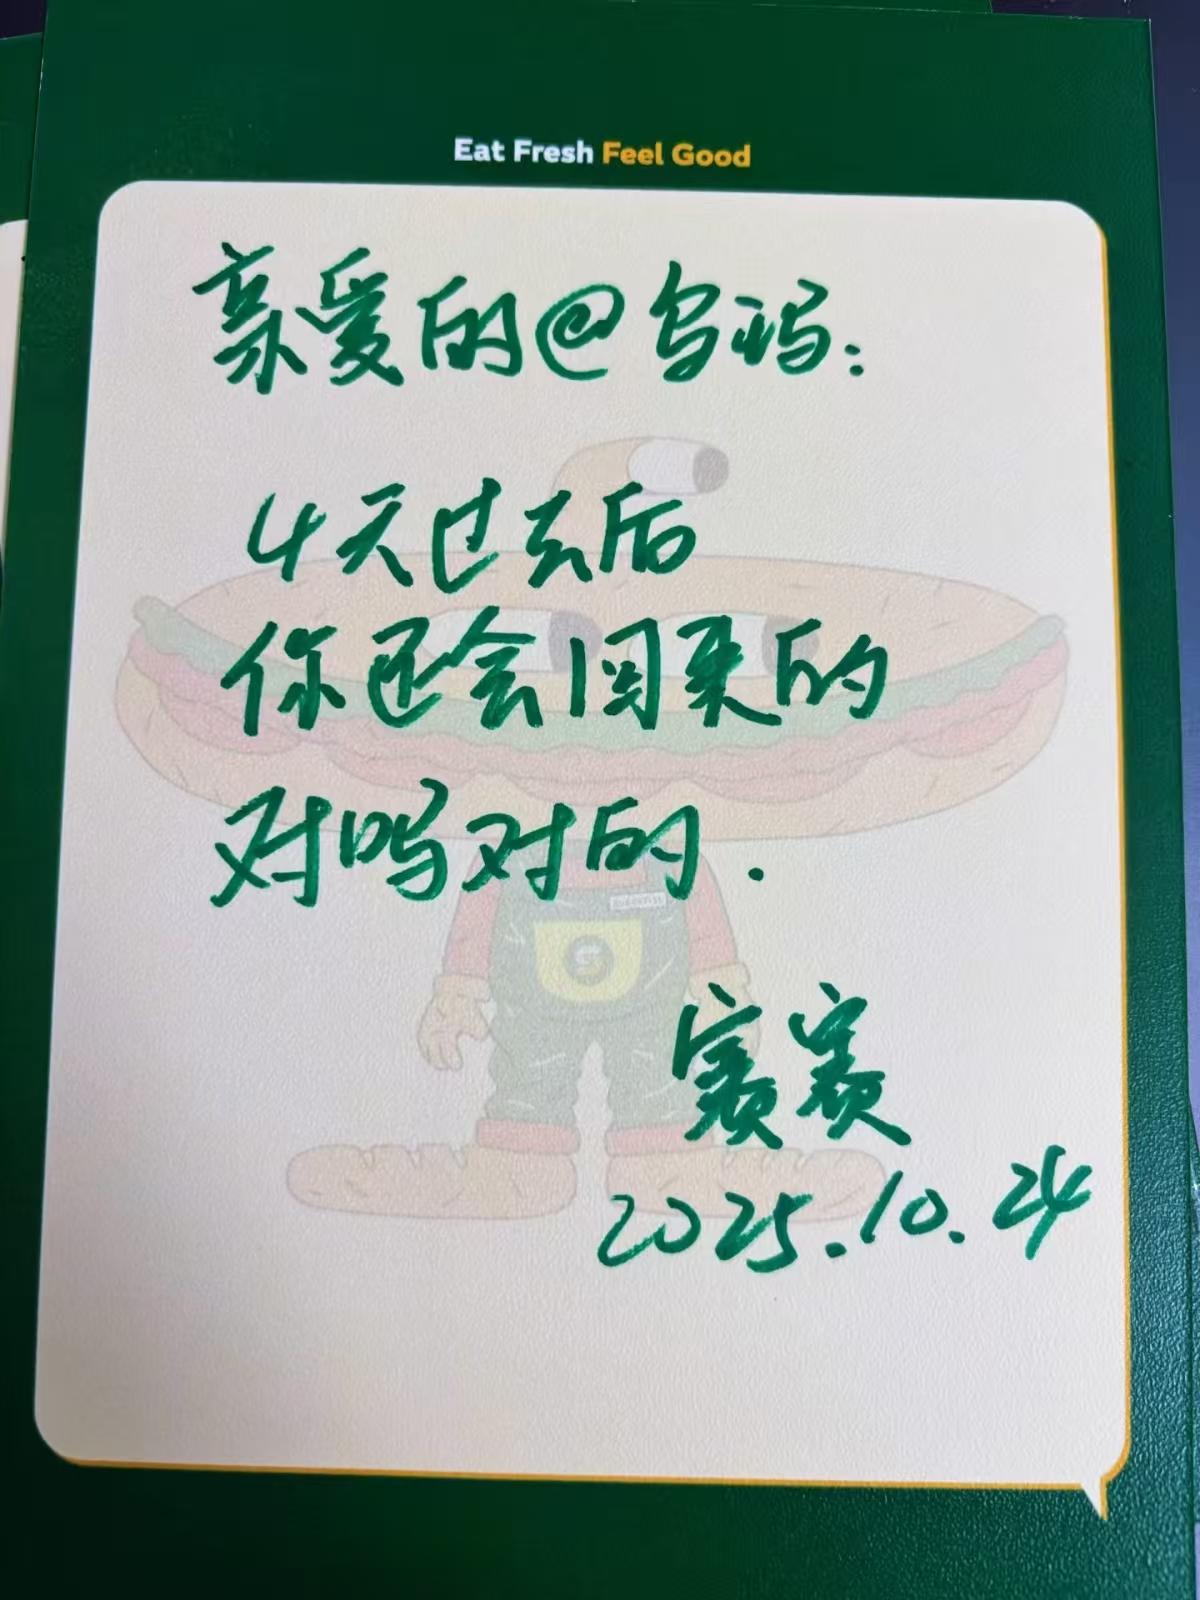 Eat Fresh Feel Good
亲爱的@乌冯:
4天过去后
你还会回来的
对吗对的.
赛赛
2025.10.24